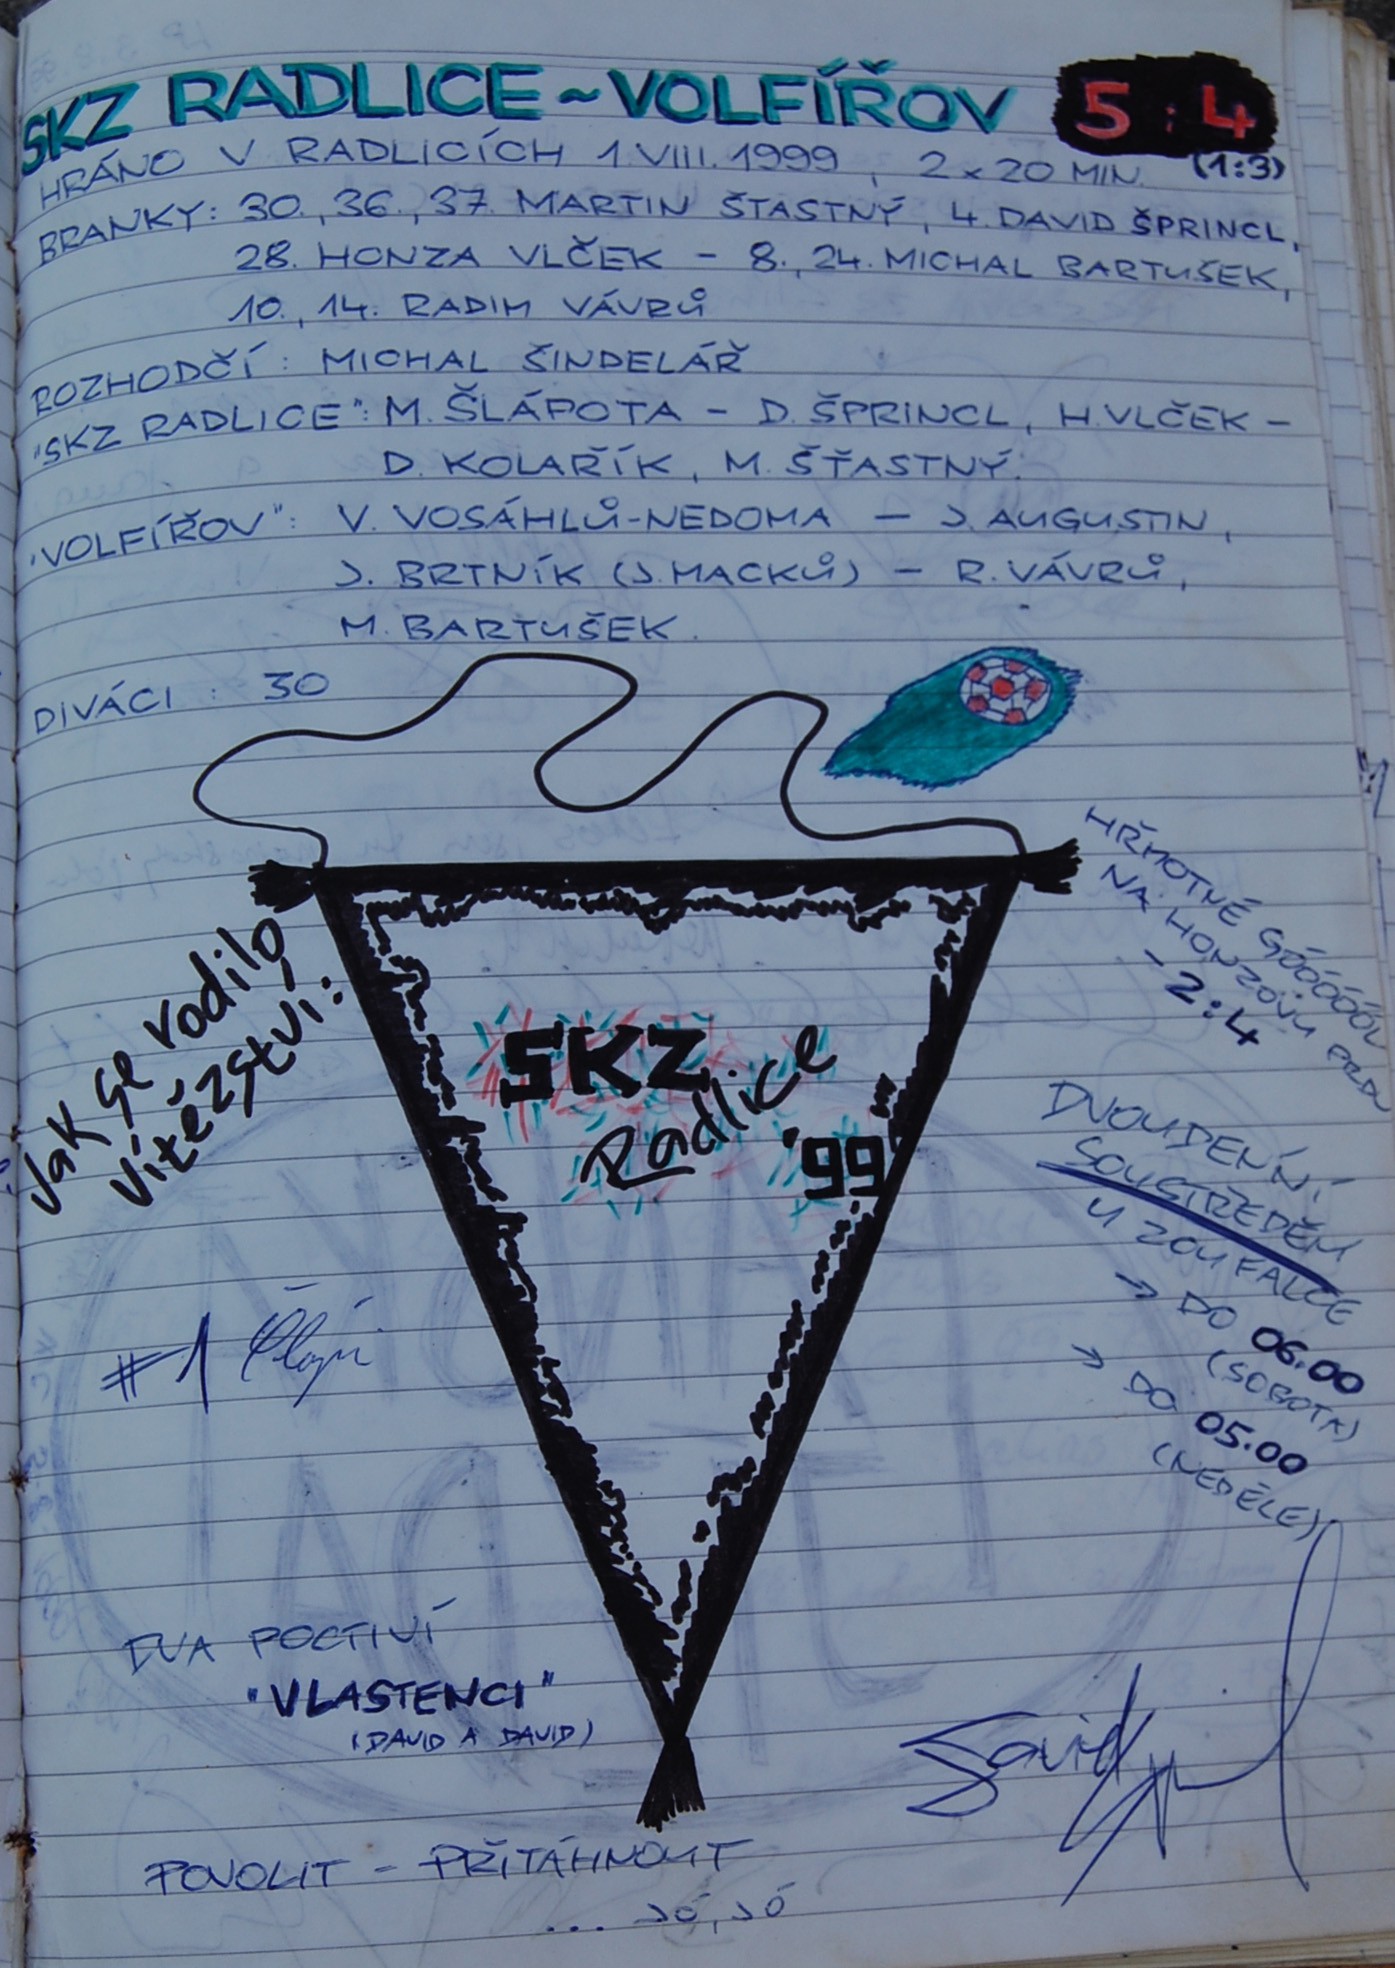 SKZ RADLICE ~ VOLFÍŘOV 5:4
HRÁNO V RADLICÍCH 1.VIII.1999, 2x20 MIN. (1:3)
BRANKY: 30., 36., 37. MARTIN ŠTASTNÝ, 4. DAVID ŠPRINCL,
28. HONZA VLČEK - 8., 24. MICHAL BARTUŠEK,
10., 14. RADIM VÁVRŮ
ROZHODČÍ: MICHAL ŠINDELÁŘ
"SKZ RADLICE": M. ŠLÁPOTA - D. ŠPRINCL, H. VLČEK -
D. KOLAŘÍK, M. ŠŤASTNÝ.
"VOLFÍŘOV": V. VOSÁHLŮ-NEDOMA - J. AUGUSTIN,
J. BRTNÍK (J. MACKŮ) - R. VÁVRŮ,
M. BARTUŠEK.
DIVÁCI: 30
HŘMOTNÉ GÓÓÓÓÓV
NA HONZOVU PRDU
- 2:4
Jak se rodilo
vítězství:
SKZ
Radlice
'99
DVOUDENNÍ
SOUSTŘEDĚM
U ZOUFALCE
→ DO 06.00
(SOBOTA)
→ DO 05.00
(NEDĚLE)
#1
DVA POCTIVÍ
"VLASTENCI"
(DAVID A DAVID)
David
POVOLIT - PŘITÁHNOUT
... JÓ, JÓ